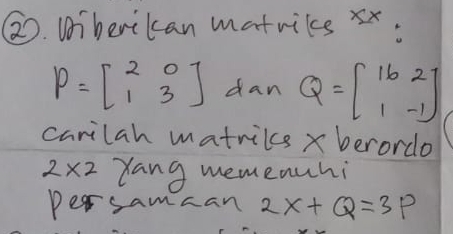 ②. Diberikan matriks xx :
P = [2 0
1 3] dan Q = [16 2
1 -1]
carilah matriks x berordo
2x2 yang memenuhi
persamaan 2x + Q = 3P